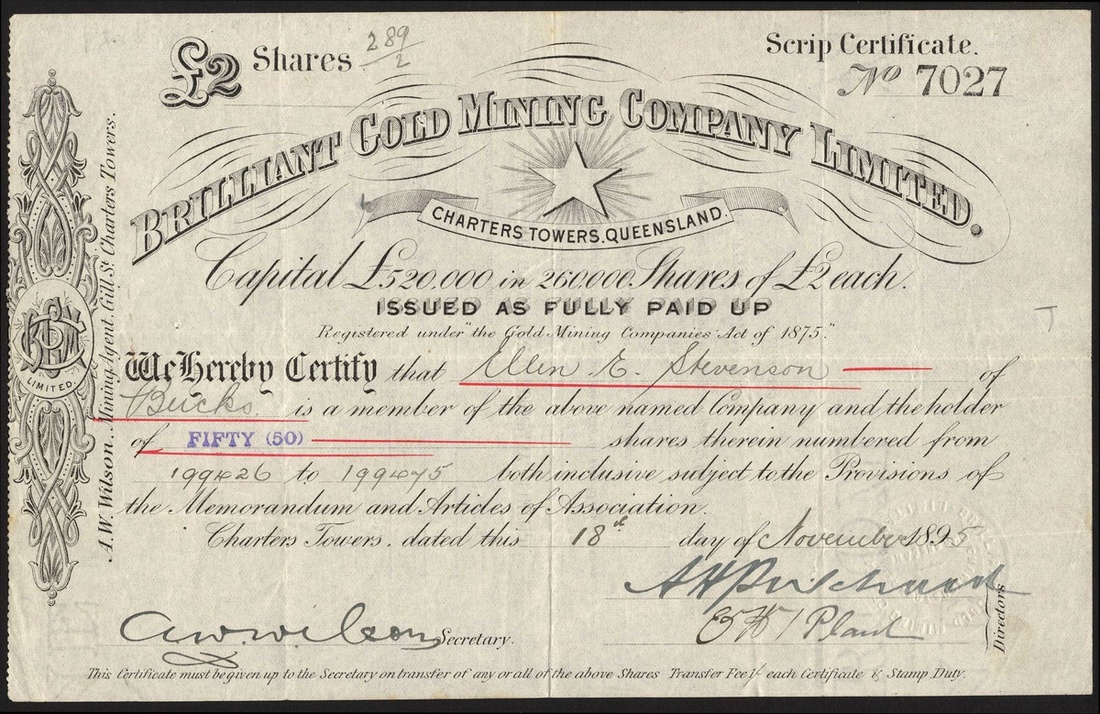 £2 Shares 289/2
Scrip Certificate.
No 7027
BRILLIANT GOLD MINING COMPANY LIMITED.
CHARTERS TOWERS. QUEENSLAND.
Capital £520.000 in 260.000 Shares of £2 each.
ISSUED AS FULLY PAID UP
Registered under "the Gold Mining Companies' Act of 1875."
We Hereby Certify that Ellen E. Stevenson of
Bucks. is a member of the above named Company and the holder
of FIFTY (50) shares therein numbered from
199426 to 199475 both inclusive subject to the Provisions of
the Memorandum and Articles of Association.
Charters Towers. dated this 18th day of November 1895
A W Wilson Secretary.
Plant
Directors
This Certificate must be given up to the Secretary on transfer of any or all of the above Shares Transfer Fee 1/- each Certificate & Stamp Duty.
LIMITED.
A.W. Wilson. Mining Agent. Gill St Charters Towers.